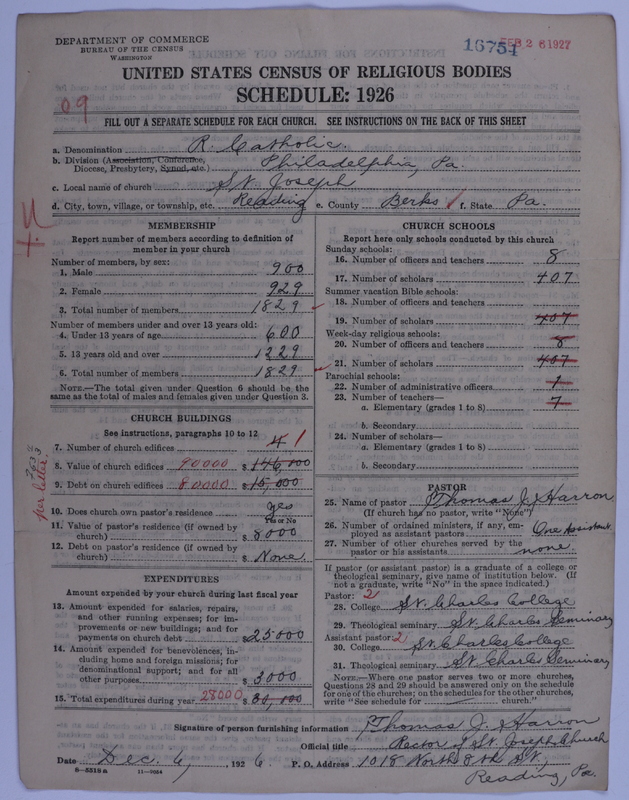 DEPARTMENT OF COMMERCE
BUREAU OF THE CENSUS
WASHINGTON
16751
FEB 26 1927
UNITED STATES CENSUS OF RELIGIOUS BODIES
SCHEDULE: 1926
09
FILL OUT A SEPARATE SCHEDULE FOR EACH CHURCH. SEE INSTRUCTIONS ON THE BACK OF THIS SHEET
a. Denomination R. Catholic.
b. Division (Association, Conference, Diocese, Presbytery, Synod, etc.) Philadelphia, Pa.
c. Local name of church St. Joseph
d. City, town, village, or township, etc. Reading e. County Berks f. State Pa.
MEMBERSHIP
Report number of members according to definition of
member in your church
Number of members, by sex:
1. Male 900
2. Female 929
3. Total number of members 1829
Number of members under and over 13 years old:
4. Under 13 years of age 600
5. 13 years old and over 1229
6. Total number of members 1829
NOTE.—The total given under Question 6 should be
same as the total of males and females given under Question 3.
CHURCH BUILDINGS
See instructions, paragraphs 10 to 12
7. Number of church edifices 4 1
8. Value of church edifices 90000 $ 146,000
9. Debt on church edifices 80000 $ 15,000
per letter
10. Does church own pastor's residence yes
Yes or No
11. Value of pastor's residence (if owned by
church) $ 8000
12. Debt on pastor's residence (if owned by
church) $ None.
EXPENDITURES
Amount expended by your church during last fiscal year
13. Amount expended for salaries, repairs,
and other running expenses; for im-
provements or new buildings; and for
payments on church debt $ 25000
14. Amount expended for benevolences, in-
cluding home and foreign missions; for
denominational support; and for all
other purposes $ 3000
15. Total expenditures during year 28000 $ 30,100
CHURCH SCHOOLS
Report here only schools conducted by this church
Sunday schools:
16. Number of officers and teachers 8
17. Number of scholars 407
Summer vacation Bible schools:
18. Number of officers and teachers
19. Number of scholars 407
Week-day religious schools:
20. Number of officers and teachers 8
21. Number of scholars 407
Parochial schools:
22. Number of administrative officers 1
23. Number of teachers—
a. Elementary (grades 1 to 8) 7
b. Secondary
24. Number of scholars—
a. Elementary (grades 1 to 8)
b. Secondary
PASTOR
25. Name of pastor Thomas J. Harron
(If church has no pastor, write "None")
26. Number of ordained ministers, if any, em-
ployed as assistant pastors One Assistant
27. Number of other churches served by the
pastor or his assistants none.
If pastor (or assistant pastor) is a graduate of a college or
theological seminary, give name of institution below. (If
not a graduate, write "No" in the space indicated.)
Pastor: 2
28. College St. Charles College
29. Theological seminary St. Charles Seminary
Assistant pastor: 2
30. College St. Charles College
31. Theological seminary St. Charles Seminary
NOTE.—Where one pastor serves two or more churches,
Questions 28 and 29 should be answered only on the schedule
for one of the churches; on the schedules for the other churches,
write "See schedule for church."
Signature of person furnishing information Thomas J. Harron
Official title Rector of St. Joseph Church
Date Dec. 6, 1926. P. O. Address 1018 North 8th St.,
8—5518a 11—9054
Reading, Pa.